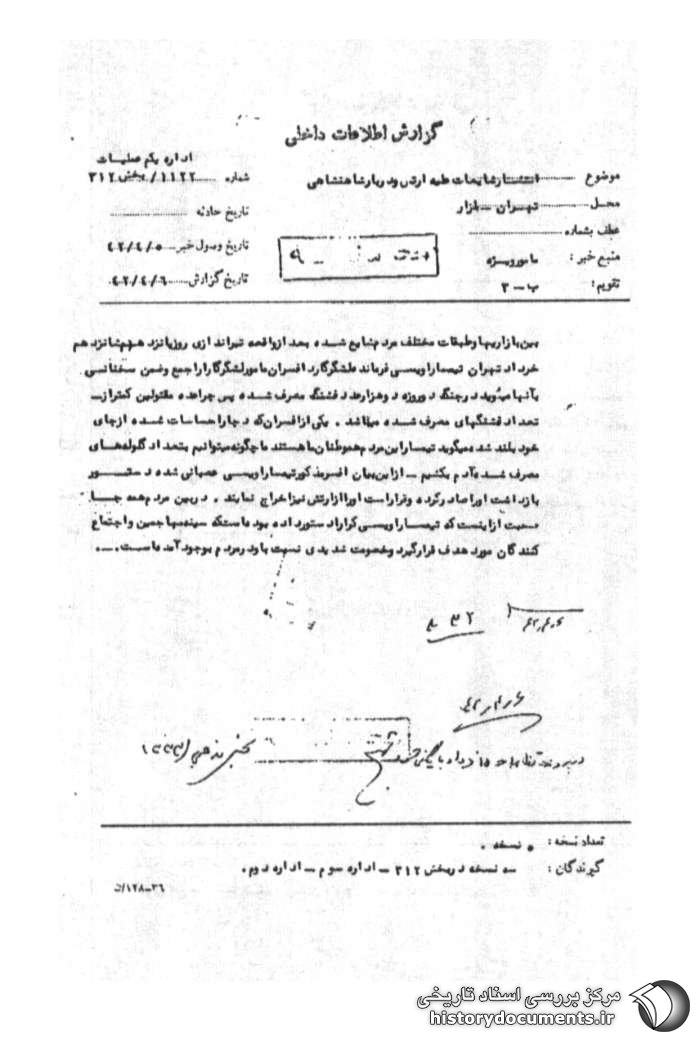 گزارش اطلاعات داخلی
اداره یکم عملیات
شماره ۱۱۲۲/بخش ۳۱۲
موضوع انتشار شایعات علیه ارتش و دربار شاهنشاهی
محل تهران ـ بازار
تاریخ حادثه
عطف بشماره
تاریخ وصول خبر ۴۲/۴/۵
منبع خبر: مامور ویژه
تاریخ گزارش ۴۲/۴/۶
تقویم: ب ـ ۳
بین بازاریها و طبقات مختلف مردم شایع شده بعد از واقعه تیراندازی روز پانزدهم شانزدهم
خرداد تهران تیمسار اویسی فرمانده لشگر گارد افسران مامور لشگر گارد را جمع و ضمن سخنانی
بآنها میگوید در جنگ دو روزه دوهزار عدد فشنگ مصرف شده پس چرا عده مقتولین کمتر از
تعداد فشنگهای مصرف شده میباشد . یکی از افسران که دچار احساسات شده از جای
خود بلند شده میگوید تیمسار این مردم هموطنان ما هستند ما چگونه میتوانیم بتعداد گلوله‌های
مصرف شده آدم بکشیم ـ از این بیان افسر مذکور تیمسار اویسی عصبانی شده دستور
بازداشت او را صادر کرده و قرار است او را از ارتش نیز اخراج نمایند . در بین مردم همه جا
صحبت از اینست که تیمسار اویسی کرارا دستور داده بوده است که سینه مهاجمین و اجتماع
کنندگان مورد هدف قرار گیرد و خصومت شدیدی نسبت باو در مردم بوجود آمده است.
۴۲/۴/۶
تعداد نسخه: ۵ نسخه .
گیرندگان: سه نسخه در بخش ۳۱۲ ـ اداره سوم ـ اداره دوم .
۳۶ـ۱۲۸/ث
مرکز بررسی اسناد تاریخی
historydocuments.ir